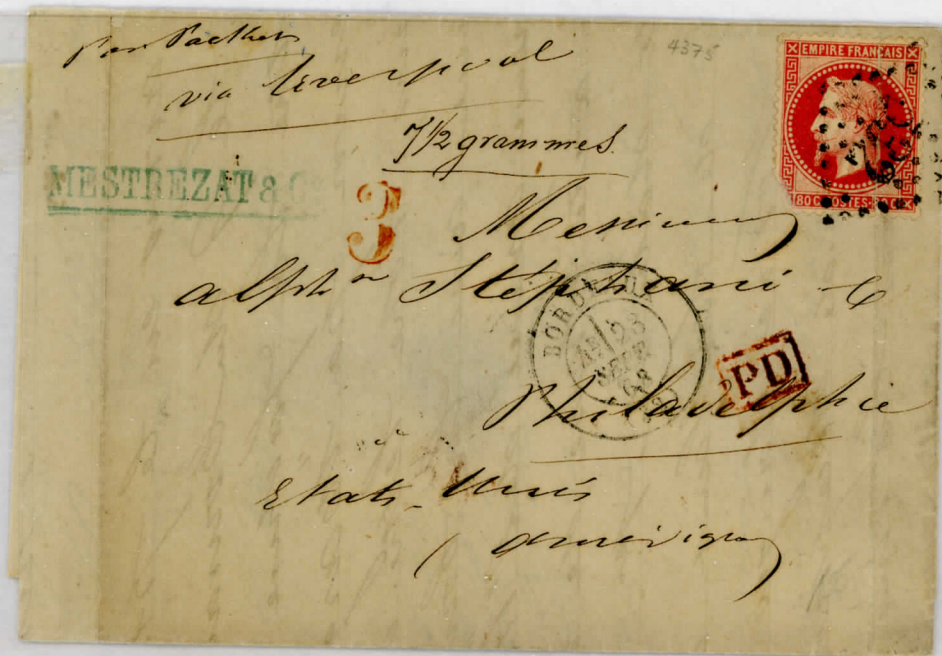 Par Packet
via Liverpool
4375
7½ grammes.
EMPIRE FRANÇAIS
80C POSTES 80C
MESTREZAT & Co
3
Messieurs
Alphe Stéphani &
BORDEAUX
23
SEPT
68
PD
Philadelphie
Etats-Unis
(Amérique)